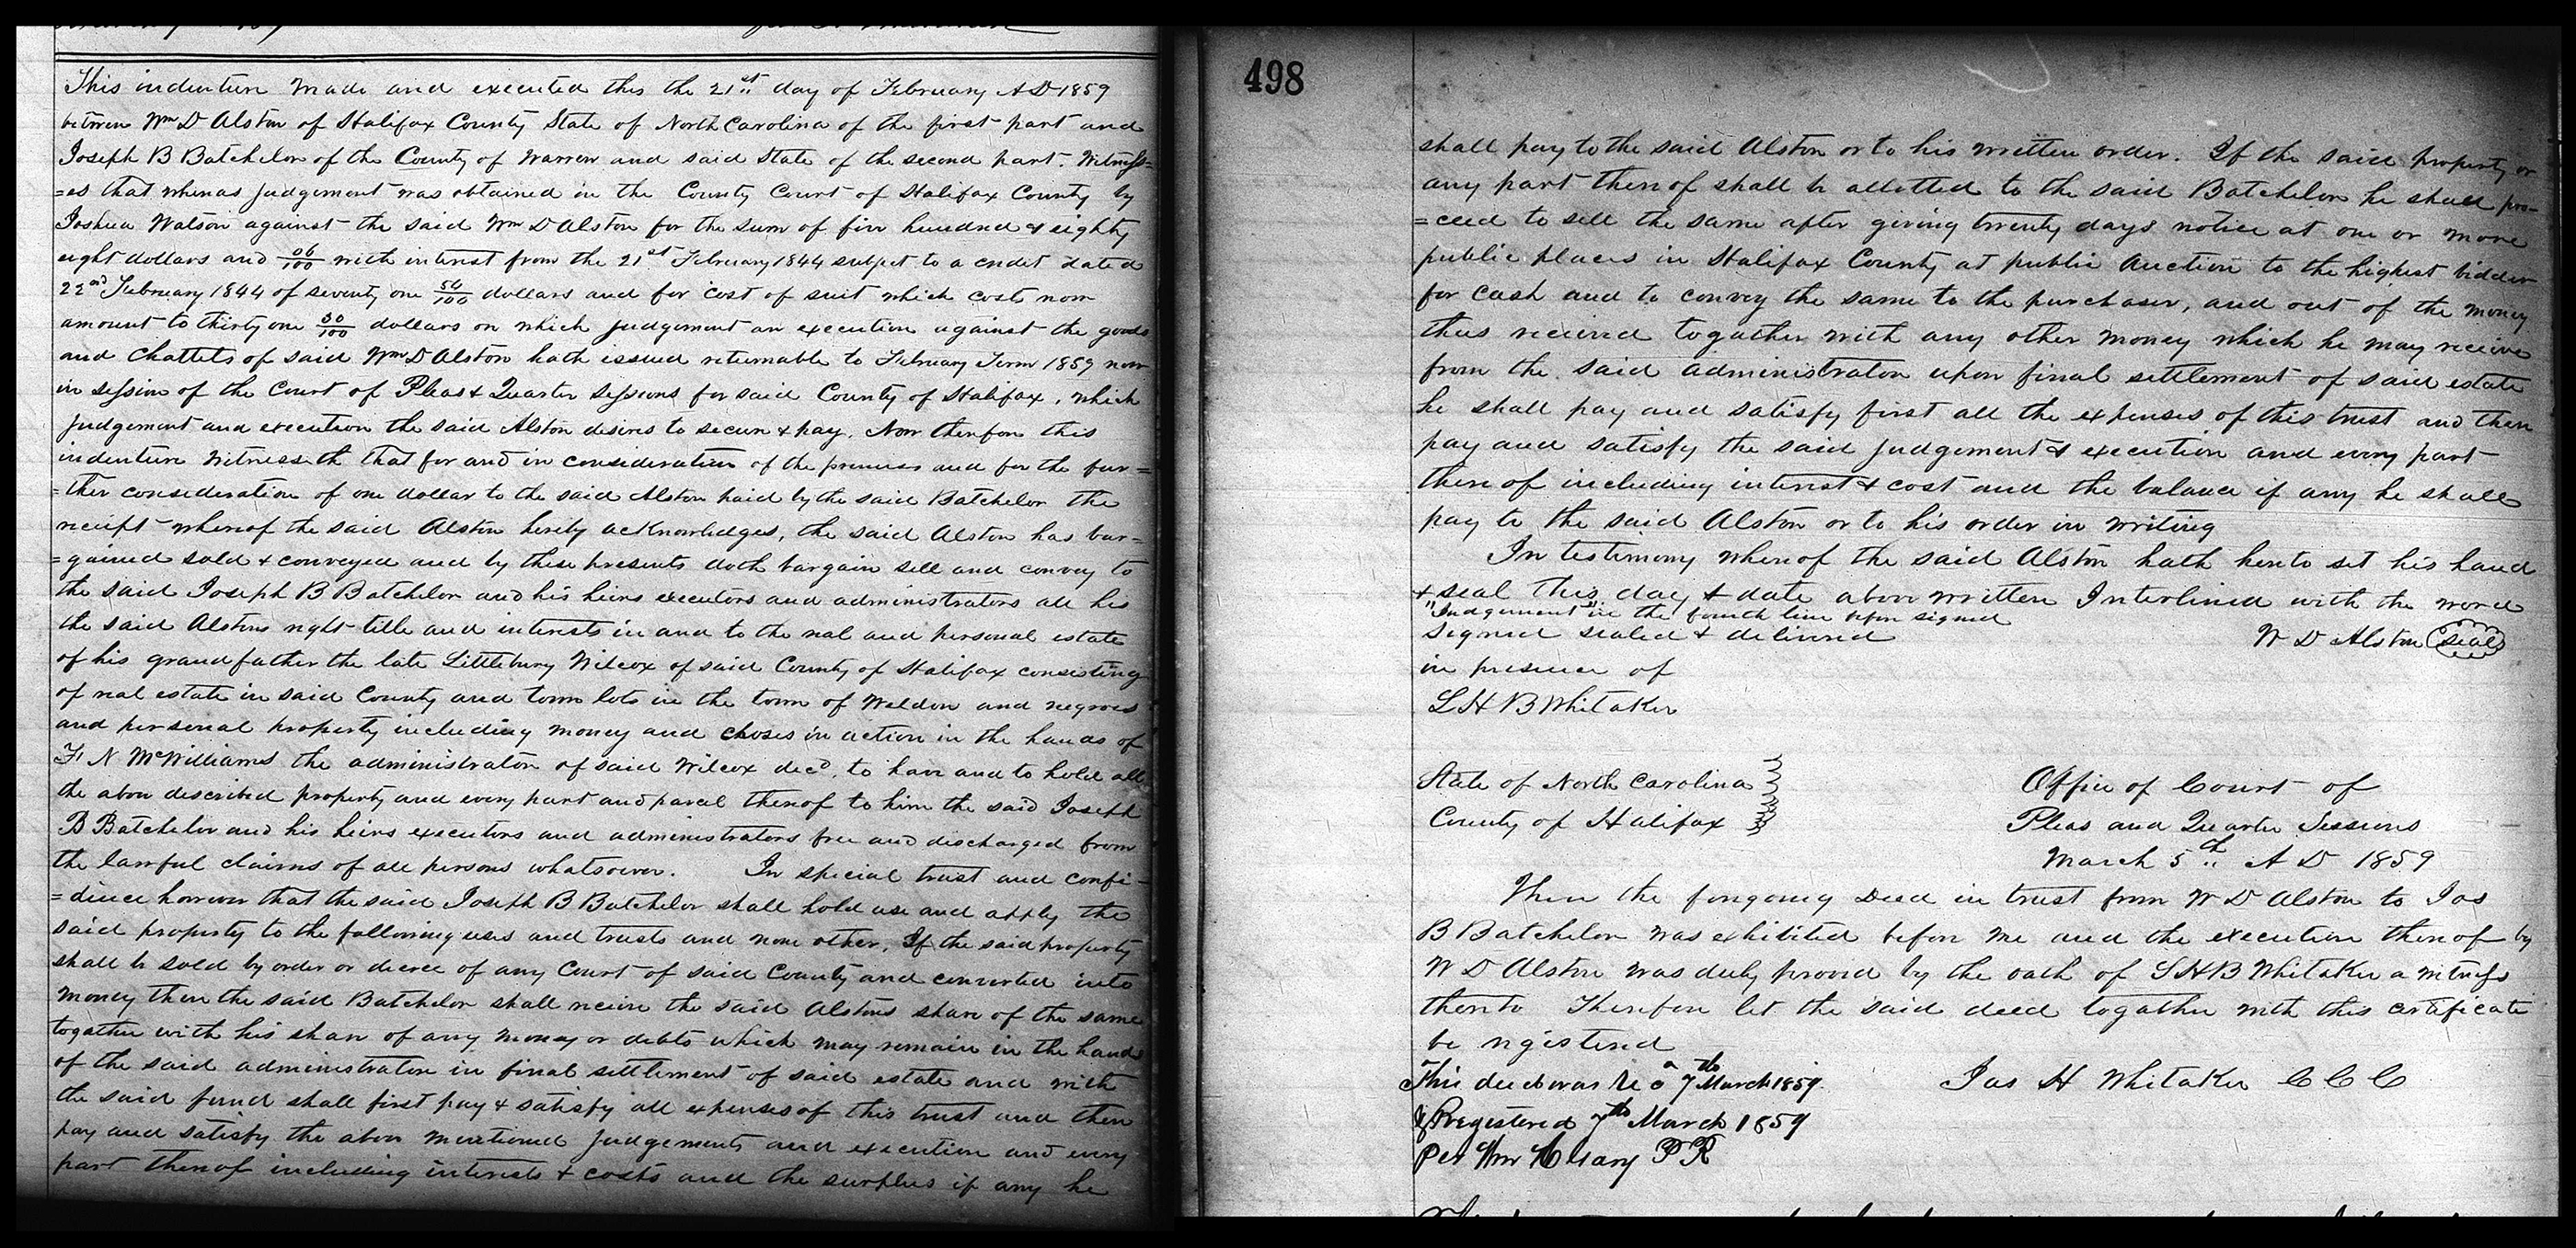 This indenture made and executed this the 21st day of February A D 1859
between Wm D Alston of Halifax County State of North Carolina of the first part and
Joseph B Batchelor of the County of Warren and said State of the second part. Witness=
=es that whereas judgement was obtained in the County Court of Halifax County by
Joshua Watson against the said Wm D Alston for the sum of five hundred & eighty
eight dollars and 06/100 with interest from the 21st February 1844 subject to a credit dated
22nd February 1844 of seventy one 54/100 dollars and for cost of suit which costs now
amount to thirty one 30/100 dollars on which judgement an execution against the goods
and chattels of said Wm D Alston hath issued returnable to February Term 1859 now
in session of the Court of Pleas & Quarter Sessions for said County of Halifax, which
judgement and execution the said Alston desires to secure & pay. Now therefore this
indenture Witnesseth that for and in consideration of the premises and for the fur=
=ther consideration of one dollar to the said Alston paid by the said Batchelor the
receipt whereof the said Alston hereby acknowledges, the said Alston has bar=
=gained sold & conveyed and by these presents doth bargain sell and convey to
the said Joseph B Batchelor and his heirs executors and administrators all his
the said Alstons right title and interests in and to the real and personal estate
of his grandfather the late Littlebury Wilcox of said County of Halifax consisting
of real estate in said County and town lots in the town of Weldon and negroes
and personal property including money and choses in action in the hands of
F N McWilliams the administrator of said Wilcox decd. to have and to hold all
the above described property and every part and parcel thereof to him the said Joseph
B Batchelor and his heirs executors and administrators free and discharged from
the lawful claims of all persons whatsoever. In special trust and confi-
=dence however that the said Joseph B Batchelor shall hold use and apply the
said property to the following uses and trusts and none other. If the said property
shall be sold by order or decree of any Court of said County and converted into
money then the said Batchelor shall receive the said Alstons share of the same
togather with his share of any money or debts which may remain in the hands
of the said administrator in final settlement of said estate and with
the said fund shall first pay & satisfy all expenses of this trust and then
pay and satisfy the above mentioned judgements and execution and every
part thereof including interests & costs and the surplus if any he
498
shall pay to the said Alston or to his written order. If the said property or
any part thereof shall be allotted to the said Batchelor he shall pro-
=ceed to sell the same after giving twenty days notice at one or more
public places in Halifax County at public Auction to the highest bidder
for cash and to convey the same to the purchaser, and out of the money
thus received togather with any other money which he may receive
from the said administrator upon final settlement of said estate
he shall pay and satisfy first all the expenses of this trust and then
pay and satisfy the said judgement & execution and every part
thereof including interest & cost and the balance if any he shall
pay to the said Alston or to his order in writing
In testimony whereof the said Alston hath hereto set his hand
& seal this day & date above written Interlined with the word
"Judgement" in the fourth line before signed
Signed sealed & delivered W D Alston (seal)
in presence of
L H B Whitaker
State of North Carolina Office of Court of
County of Halifax Pleas and Quarter Sessions
March 5th A D 1859
Then the foregoing Deed in trust from W D Alston to Jos
B Batchelor was exhibited before me and the execution thereof by
W D Alston was duly proved by the oath of L H B Whitaker a witness
thereto Therefore let the said deed togather with this certificate
be registered
This deed was Recd 7th March 1859. Jas H Whitaker C C C
& Registered 7th March 1859
Per Wm P R